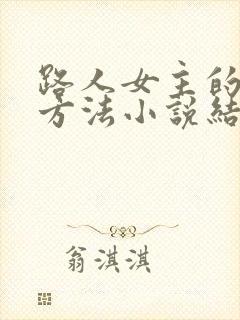 路人女主的
方法小說結
翁淇淇